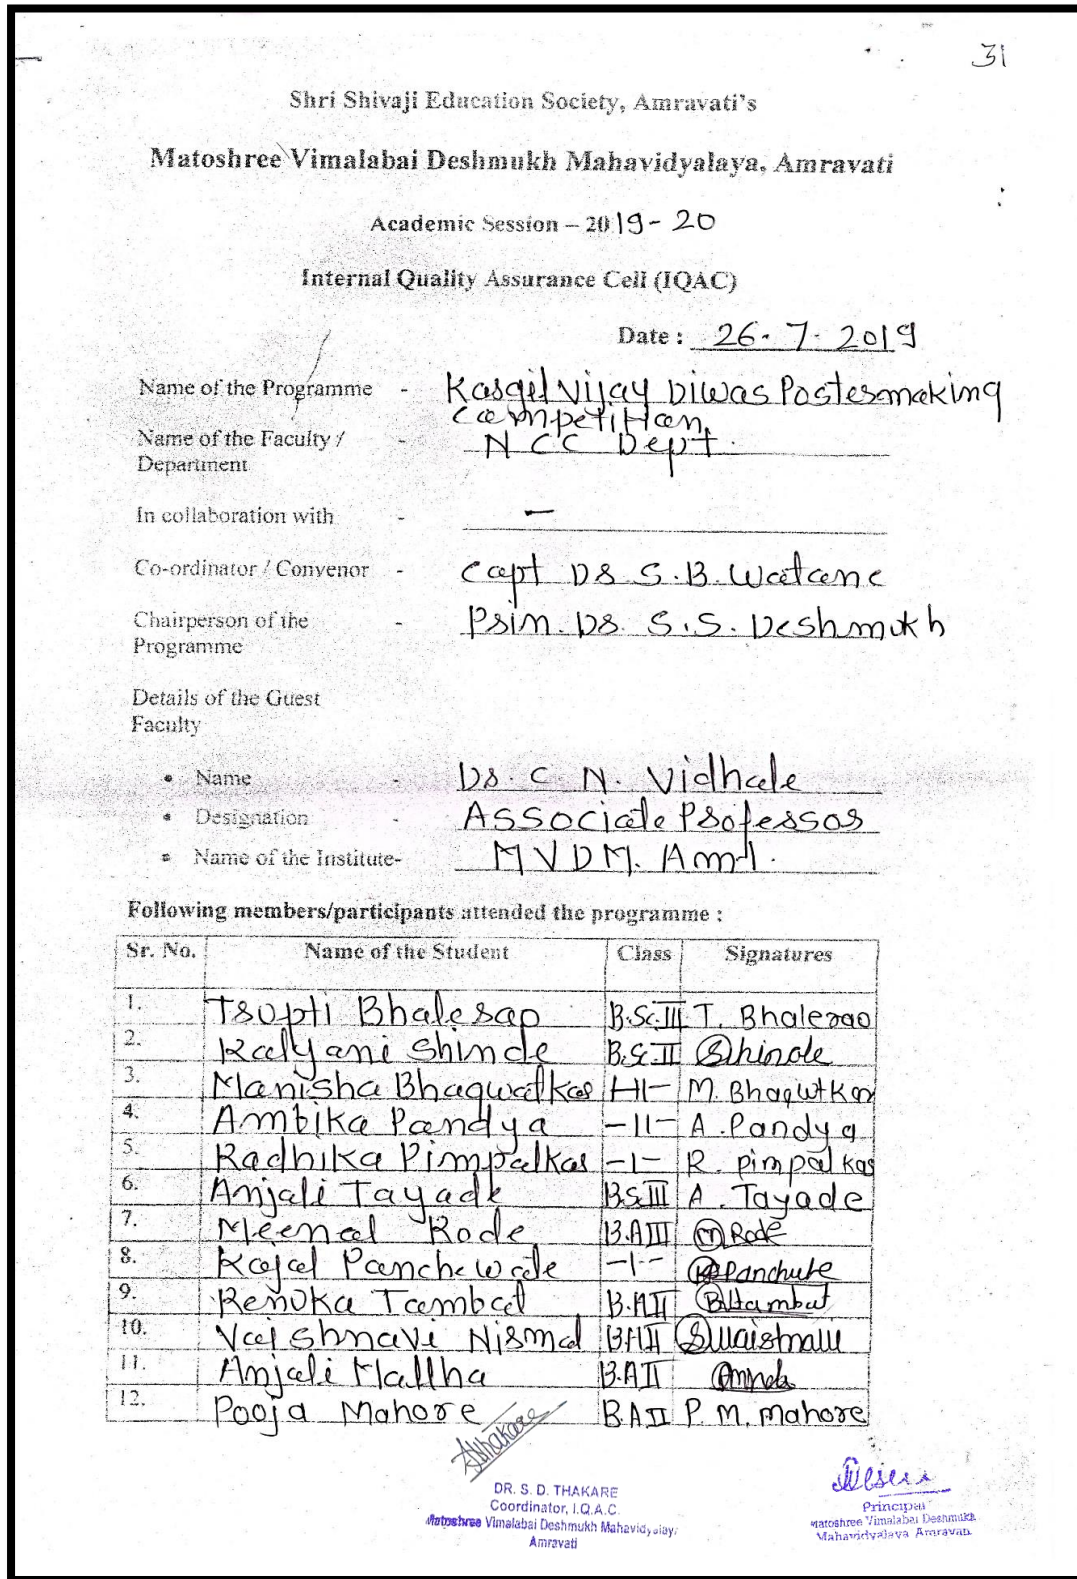 31
Shri Shivaji Education Society, Amravati's
Matoshree Vimalabai Deshmukh Mahavidyalaya, Amravati
Academic Session – 2019-20
Internal Quality Assurance Cell (IQAC)
Date : 26-7-2019
Name of the Programme - Kargil Vijay Diwas Postermaking
Competition,
Name of the Faculty / - NCC Dept.
Department
In collaboration with - –
Co-ordinator / Convenor - Capt Dr S.B. Watane
Chairperson of the - Prin. Dr. S.S. Deshmukh
Programme
Details of the Guest
Faculty
• Name - Dr. C. N. Vidhale
• Designation - Associate Professor
• Name of the Institute- MVDM. Amt.
Following members/participants attended the programme :
Sr. No. Name of the Student Class Signatures
1. Trupti Bhalerao B.Sc.III T. Bhalerao
2. Kalyani Shinde B.Sc.II Shinde
3. Manisha Bhagwatkar –II– M. Bhagwtkar
4. Ambika Pandya –II– A. Pandya
5. Radhika Pimpalkar –I– R. pimpalkar
6. Anjali Tayade B.Sc.III A. Tayade
7. Meenal Rode B.A III M Rode
8. Kajal Panchewade –I–
9. Renuka Tambat B.A II
10. Vaishnavi Nirmal B.A II
11. Anjali Mallha B.A II
12. Pooja Mahore B.A II P. M. Mahore
Thakare
DR. S. D. THAKARE
Coordinator, I.Q.A.C.
Matoshree Vimalabai Deshmukh Mahavidyalay,
Amravati
Principal
Matoshree Vimalabai Deshmukh
Mahavidyalaya Amravati